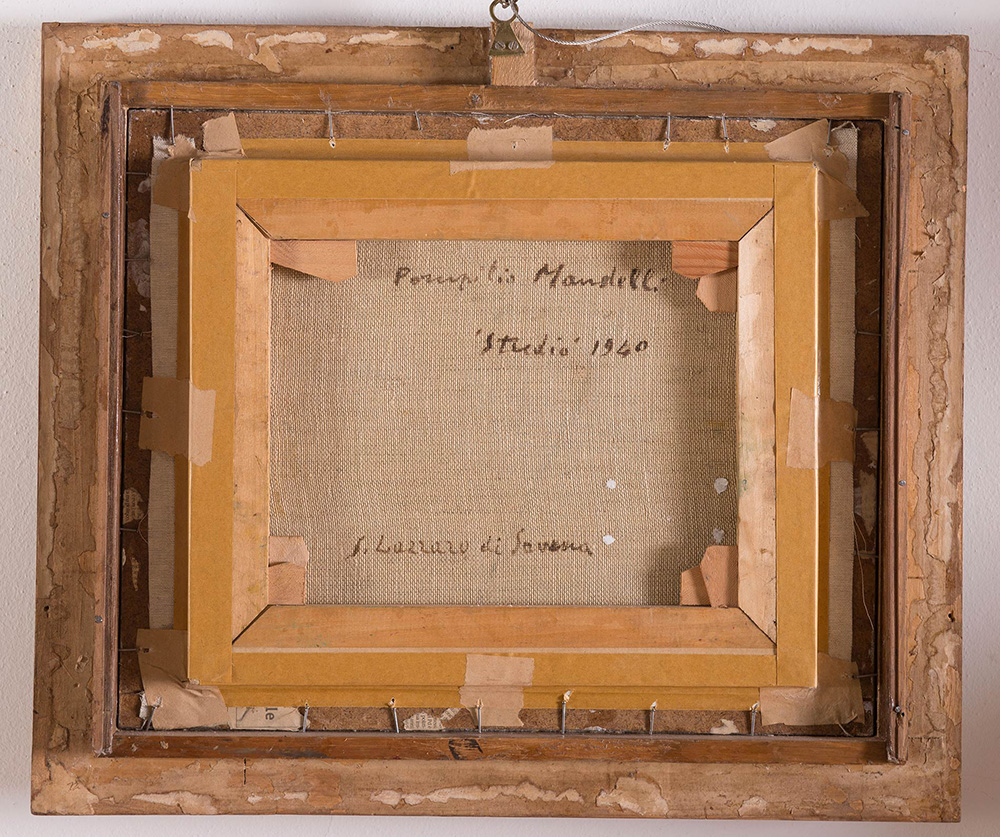 Pompilio Mandelli
'Studio' 1940
S. Lazzaro di Savena
le